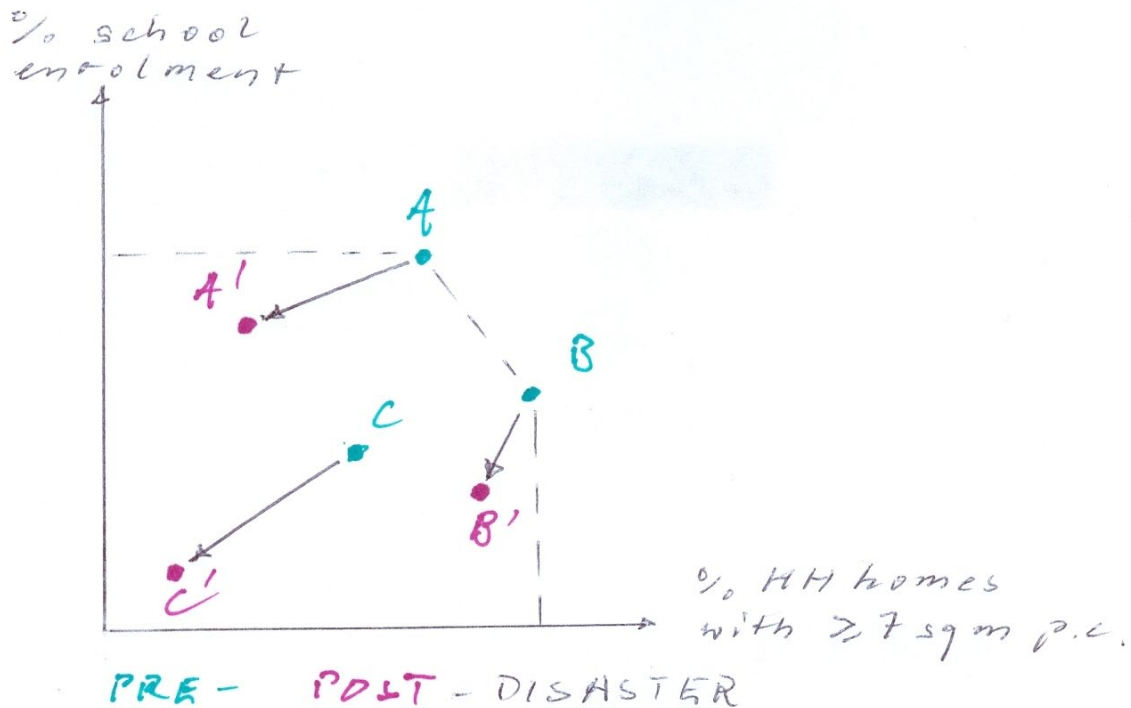 % school
enrolment
A
A'
B
C
B'
C'
% HH homes
with ≥ 7 sqm p.c.
PRE - POST - DISASTER